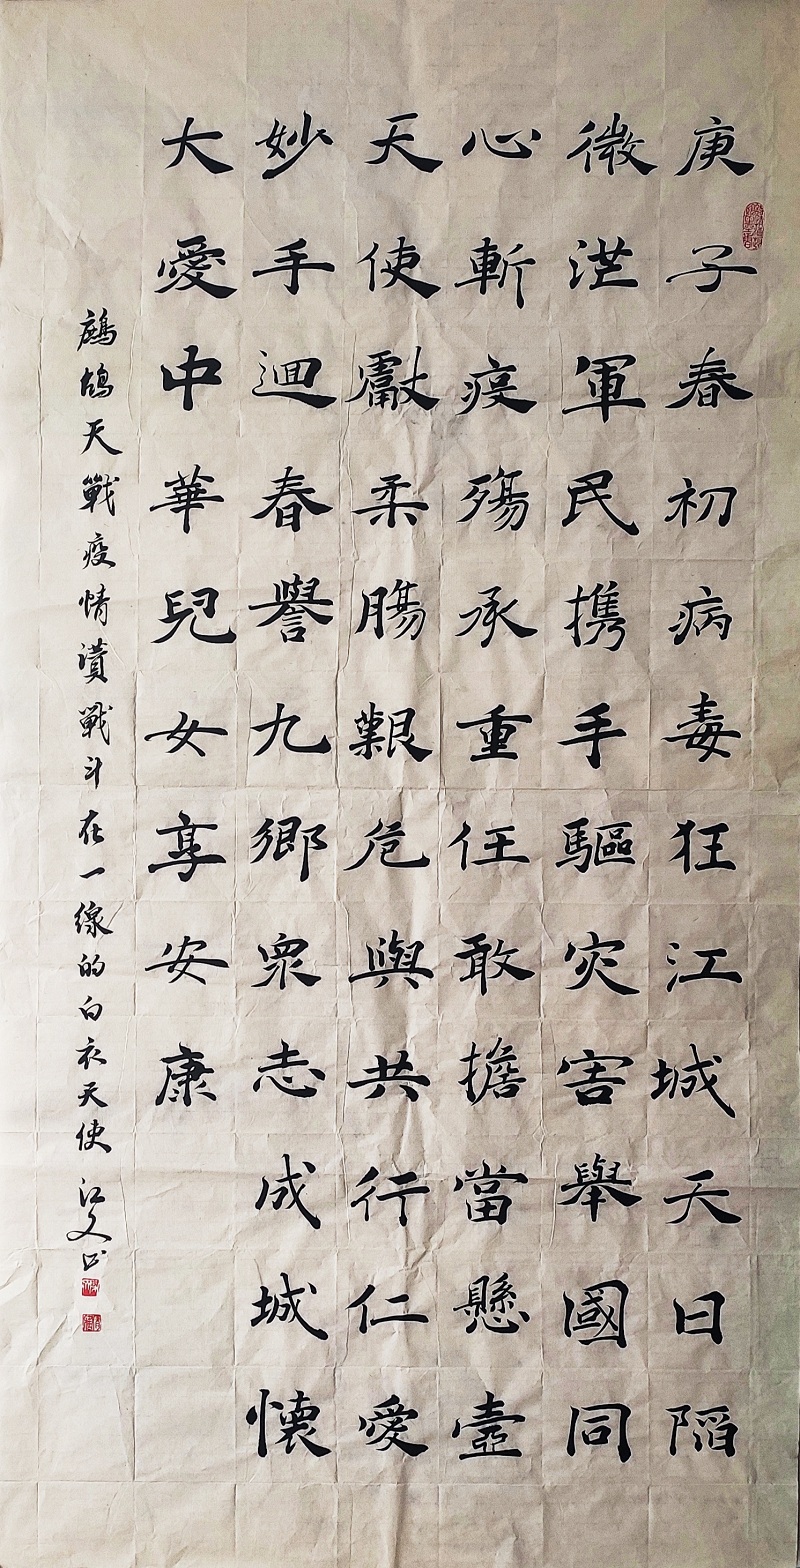 庚子春初病毒狂江城天日陷
微茫軍民携手驅灾害舉國同
心斬疫殤承重任敢擔當懸壺
天使獻柔腸艱危與共行仁愛
妙手迴春譽九鄉衆志成城懷
大愛中華兒女享安康
鷓鴣天戰疫情讚戰斗在一線的白衣天使 江文书